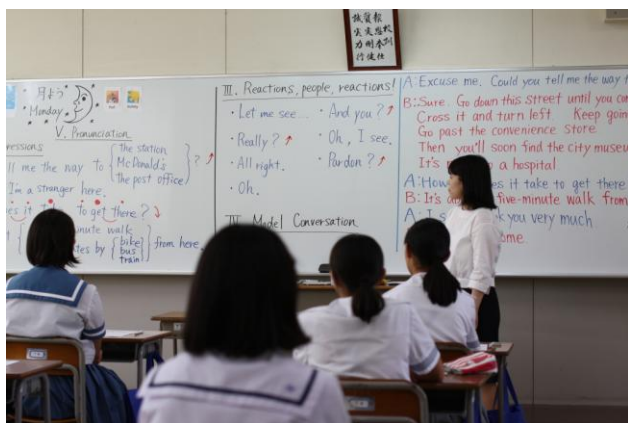 月よう
Monday
V. Pronunciation
ressions
ll me the way to { the station
McDonald's
the post office } ?
I'm a stranger here.
es it to get there?
nute walk
tes by { bike
bus
train } from here.
III. Reactions, people, reactions!
· Let me see...
· Really?
· All right.
· Oh.
· And you?
· Oh, I see.
· Pardon?
IV. Model Conversation
A: Excuse me. Could you tell me the way t
B: Sure. Go down this street until you com
Cross it and turn left. Keep going
Go past the convenience store
Then you'll soon find the city museu
It's a hospital
A: How es it take to get there
B: It's a five-minute walk from
A: I s k you very much
ome.